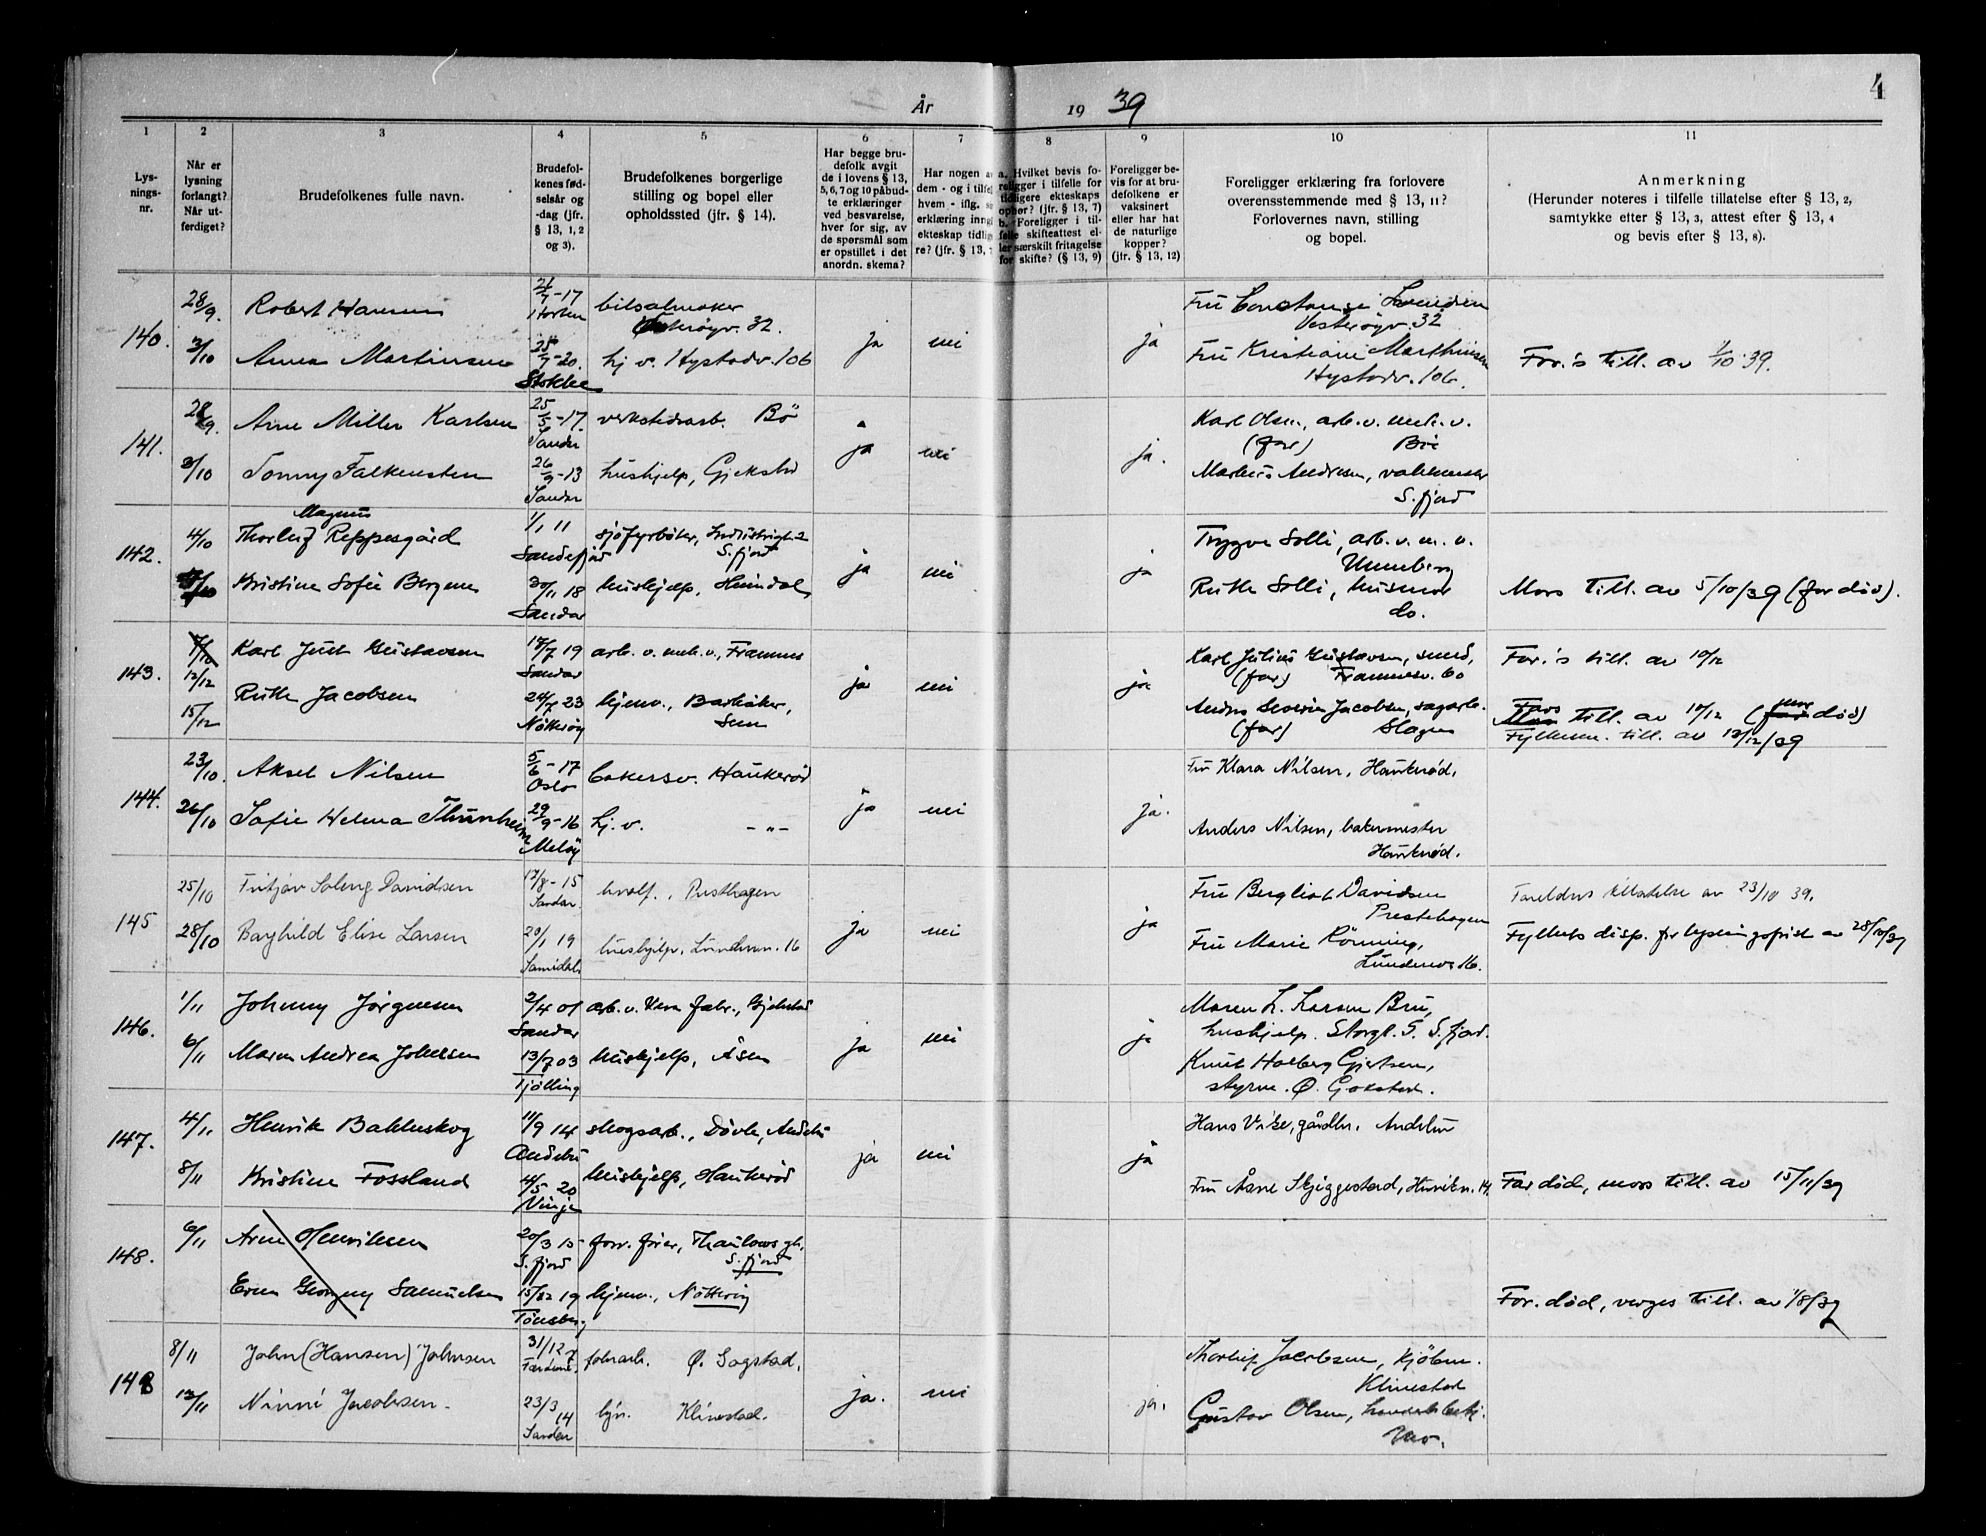 4
År 19 39
1 2 3 4 5 6 7 8 9 10 11
Lys-
nings-
nr.
Når er
lysning
forlangt?
Når ut-
ferdiget?
Brudefolkenes fulle navn.
Brudefol-
kenes fød-
selsår og
-dag (jfr.
§ 13, 1, 2
og 3).
Brudefolkenes borgerlige
stilling og bopel eller
opholdssted (jfr. § 14).
Har begge bru-
defolk avgit
de i lovens § 13,
5, 6, 7 og 10 påbud-
te erklæringer
ved besvarelse,
hver for sig, av
de spørsmål som
er opstillet i det
anordn. skema?
Har nogen a
dem - og i tilfel
hvem - iflg.
erklæring inng
ekteskap tidlig
re? (jfr. § 13,
a. Hvilket bevis fo-
religger i tilfelle for
tidligere ekteskaps
ophør? (jfr. § 13, 7)
b. Foreligger i til-
felle skifteattest el-
ler særskilt fritagelse
for skifte? (§ 13, 9)
Foreligger be-
vis for at bru-
defolkene er
vaksinert
eller har hat
de naturlige
kopper?
(jfr. § 13, 12)
Foreligger erklæring fra forlovere
overensstemmende med § 13, 11?
Forlovernes navn, stilling
og bopel.
Anmerkning
(Herunder noteres i tilfelle tillatelse efter § 13, 2,
samtykke efter § 13, 3, attest efter § 13, 4
og bevis efter § 13, 8).
140. 28/9. Robert Hansen -17 Horten bilsalmaker
Vesterøyv. 32.
Fru Constanse
Vesterøyv. 32
2/10 Anna Martinsen 25/7-20. Stokke hj. v. Hystadv. 106 ja nei ja
Fru Kristiane Marthinsen
Hystadv. 106.
For.'s till. av 1/10 39.
141. 28/9. Arne Miller Karlsen 25/5-17. Sandar verkstedsarb. Bö
Karl Olsen, arb. v. mek. v.
(far) Bö
3/10 Tonny Falkensten 26/9-13 Sandar hushjelp, Gjekstad ja nei ja.
Markus Andresen,
S. fjord
142. 4/10 Thorleif Magnus Reppesgård 1/1 11 Sandefjord sjöfyrböter, Industrigt. 2
S. fjord
Trygve Solli, arb. v. m. v.
Unneberg
5/10 Kristine Sofie Bergem 30/11 18 Sandar hushjelp, Heimdal ja nei ja
Ruth Solli, husmor
do.
Mors till. av 5/10/39 (far död).
143. 7/10 Karl Just Gustavsen 17/7 19 Sandar arb. v. mek. v., Framnes
Karl Julius Gustavsen, smed,
(far) Framnesv. 60
For.'s till. av 10/12
12/12
15/12 Ruth Jacobsen 24/7 23 Nötteröy hjemv., Barkåker,
Sem
ja nei ja
Anders Severin Jacobsen, sagarb.
(far) Slagen
Fars Mors till. av 10/12 (mor far död)
Fylkesm. till. av 12/12/39
144. 23/10. Aksel Nilsen 5/6-17 Oslo bakersv. Haukeröd
Fru Klara Nilsen, Haukeröd,
26/10 Sofie Helena Thunheim 29/9-16 Melöy hj. v. -"- ja nei ja.
Anders Nilsen, bakermester
Haukeröd.
145 25/10 Fritjov Soleng Davidsen 17/8-15 Sandar. hvalf., Presthagen
Fru Bergliot Davidsen
Prestehagen
Foreldres tillatelse av 23/10 39.
28/10 Borghild Elise Larsen 20/1 19 hushjelp, Lundenvn. 16 ja nei ja
Fru Marie Rönning,
Lundenvn 16.
Fylkets disp. for lysningsfrist av 28/10/39
146. 1/11 Johnny Jörgensen 2/4 01 Sandar arb. v. Vera fabr., Gjekstad
Maren L. Larsen Bru,
hushjelp. Storgt. 5. S. fjord.
6/11 Maren Andrea Johnsen 13/7 03 Tjölling hushjelp, Åsen ja nei ja
Knut Holberg Gjertsen,
styrm. Ø. Gokstad.
147. 4/11 Henrik Bakkeskog 11/9 14 Andebu skogsarb., Dövle, Andebu
Hans Vike, gårdbr. Andebu
8/11 Kristine Fossland 4/5 20 Vinje hushjelp, Haukeröd ja nei ja
Fru Åsne Skjeggestad, 14.
Far död, mors till. av 15/11/39
148. 6/11 Arne Henriksen 20/3 15 S. fjord forr. förer, Thaulows gt.
S. fjord
Georgny Samuelsen 15/12 19 Tönsberg hjemv., Nötteröy
For. död, verges till. av 1/8/39
148 8/11 John (Hansen) Johnsen 31/12 fabrarb. Ø. Gogstad.
Thorleif Jacobsen, kjöbm.
Klinestad
12/11 Ninni Jacobsen. 23/3 14 Sandar hjv. Klinestad. ja. nei ja.
Gustav Olsen,